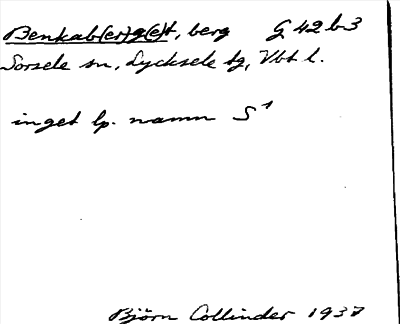 Benkab(er)g(e)t, berg G 42 b 3
Sorsele sn, Lycksele tg, Vbt l.
inget lp. namn S¹
Björn Collinder 1937